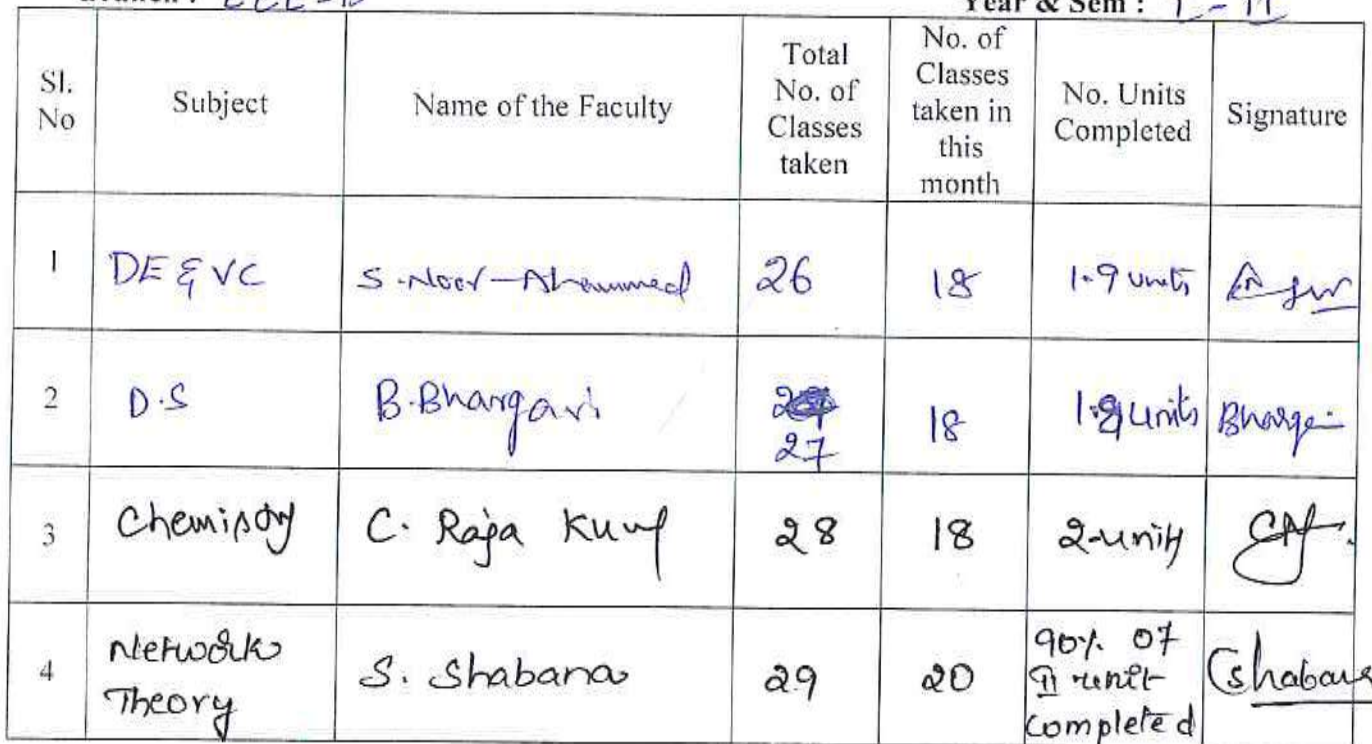 Year & Sem : I - II
Sl. No Subject Name of the Faculty Total No. of Classes taken No. of Classes taken in this month No. Units Completed Signature
1 DE & VC S. Noor-Ahammed 26 18 1.9 units
2 D.S B. Bhargavi 27 18 units Bhargavi
3 Chemistry C. Raja 28 18 2-units
4 Network Theory S. Shabana 29 20 90% of II unit completed Shabana